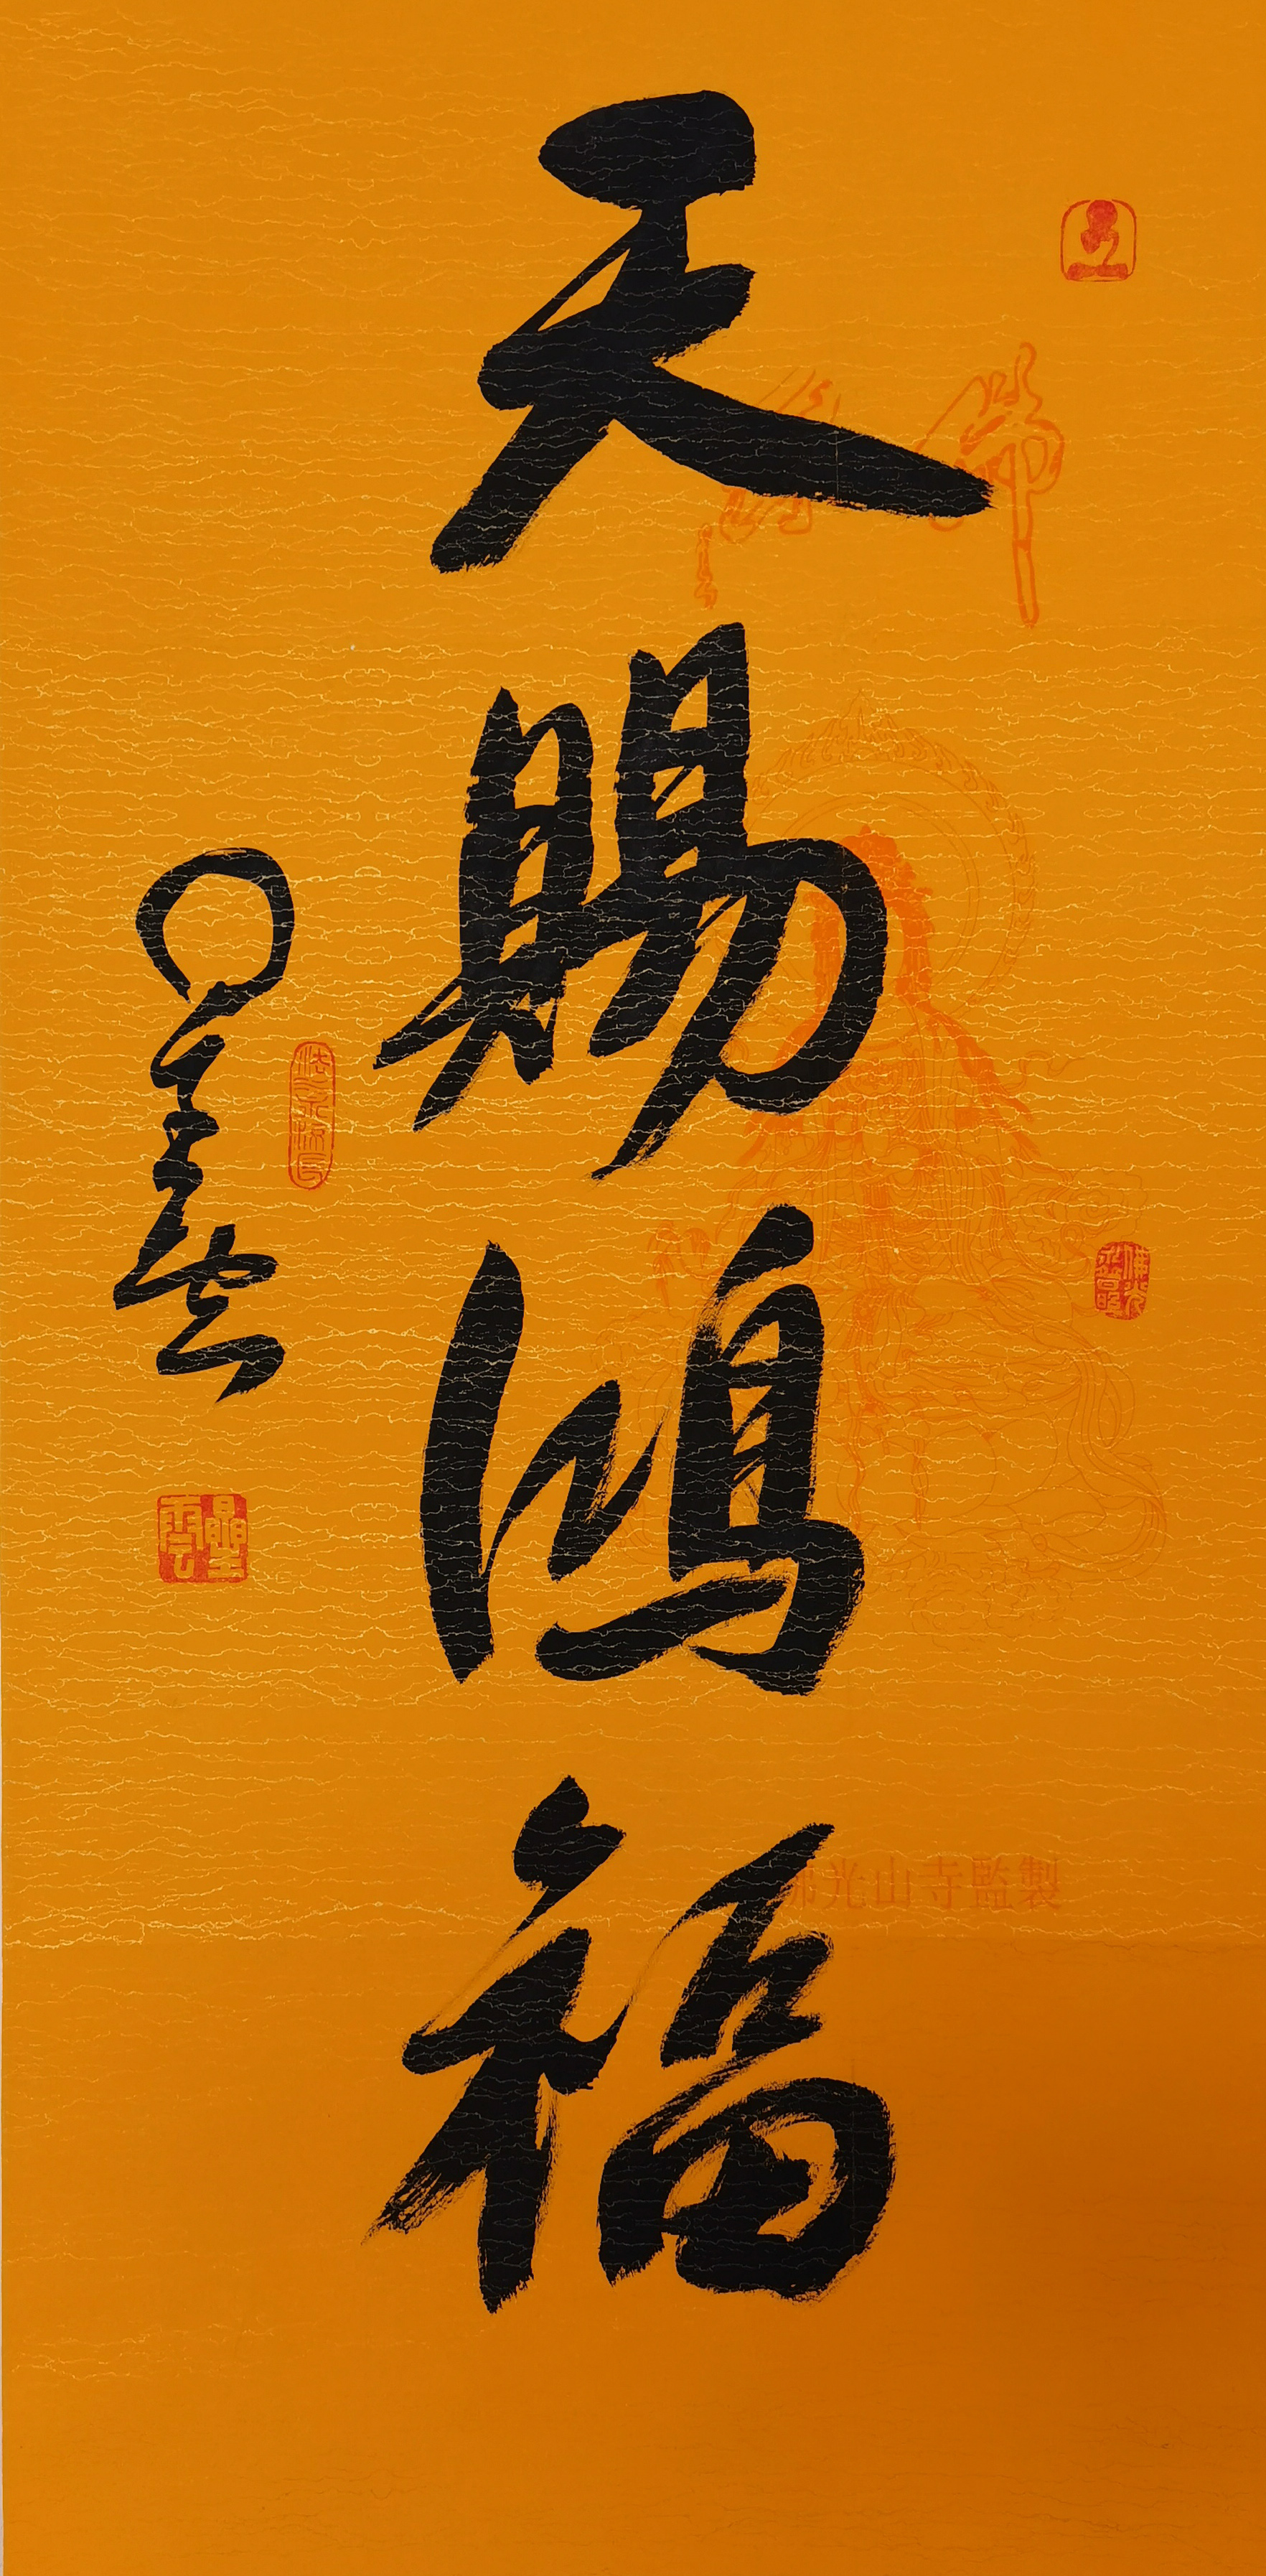 天賜鴻福
星雲
星雲
佛光山寺監製